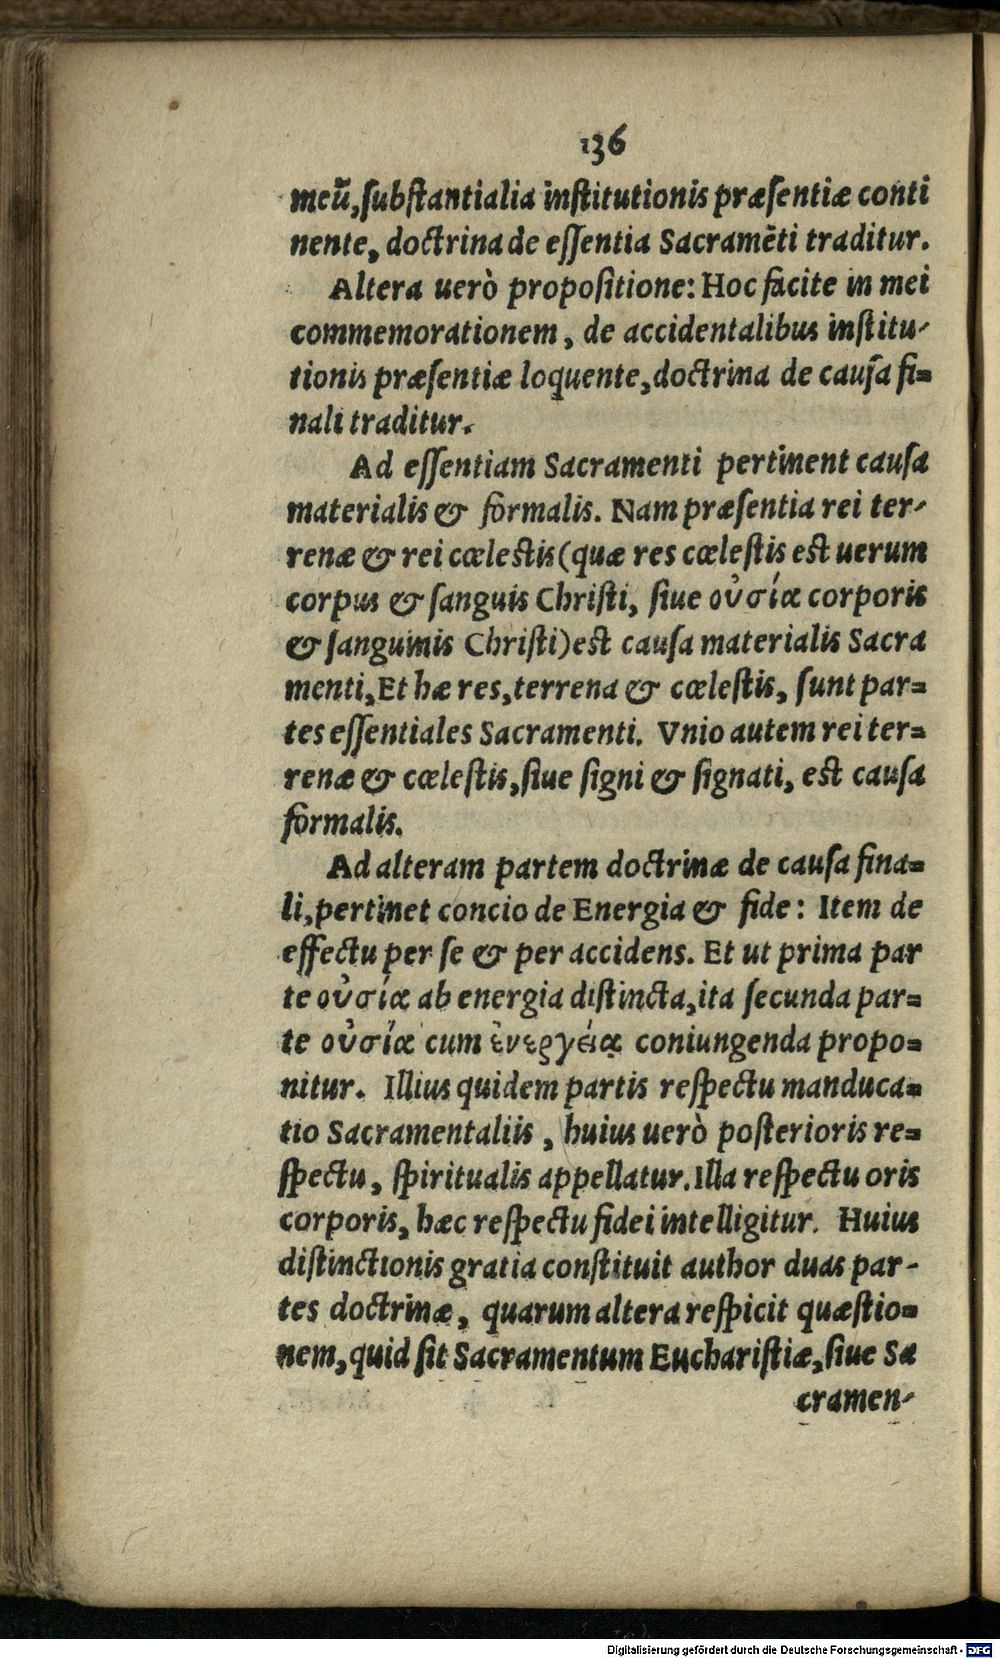 136
meū, substantialia institutionis præsentiæ conti
nente, doctrina de essentia Sacramēti traditur.
Altera uerò propositione: Hoc facite in mei
commemorationem, de accidentalibus institu-
tionis præsentiæ loquente, doctrina de causa fi-
nali traditur.
Ad essentiam Sacramenti pertinent causa
materialis & formalis. Nam præsentia rei ter-
renæ & rei cœlestis (quæ res cœlestis est uerum
corpus & sanguis Christi, siue οὐσία corporis
& sanguinis Christi) est causa materialis Sacra
menti, Et hæ res, terrena & cœlestis, sunt par-
tes essentiales Sacramenti. Vnio autem rei ter-
renæ & cœlestis, siue signi & signati, est causa
formalis.
Ad alteram partem doctrinæ de causa fina-
li, pertinet concio de Energia & fide: Item de
effectu per se & per accidens. Et ut prima par
te οὐσία ab energia distincta, ita secunda par-
te οὐσία cum ἐνεργείᾳ coniungenda propo-
nitur. Illius quidem partis respectu manduca-
tio Sacramentaliis, huius uerò posterioris re-
spectu, spiritualis appellatur. Illa respectu oris
corporis, hæc respectu fidei intelligitur. Huius
distinctionis gratia constituit author duas par-
tes doctrinæ, quarum altera respicit quæstio-
nem, quid sit Sacramentum Eucharistiæ, siue Sa
cramen-
Digitalisierung gefördert durch die Deutsche Forschungsgemeinschaft - DFG